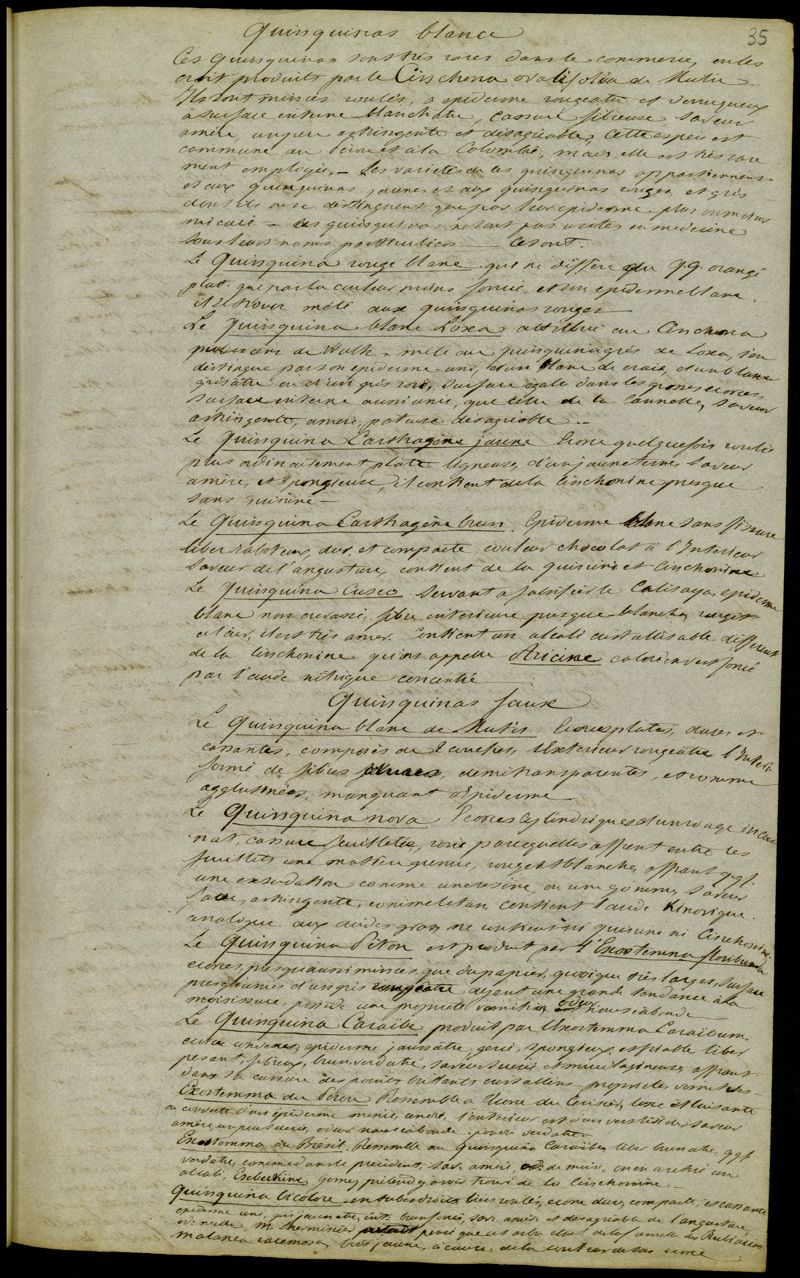 35
Quinquinas blancs
Ces quinquinas sont très rares dans le commerce, on les
croit produits par le Cinchona ovalifolia de Mutis.
Ils sont minces roulés, à épiderme rougeatre et verruqueux
à surface interne blanchatre, cassure fibreuse, saveur
amère, un peu astringente et désagréable, cette espèce est
commune au Pérou et à la Colombie, mais elle est très rare
ment employée. - Les variétés de ces quinquinas appartiennent
et aux quinquinas jaunes et aux quinquinas rouges et gris
dont ils ne se distinguent que par leur épiderme plus ou moins
micacé - ces quinquinas ne sont pas usités en médecine
sous leurs noms particuliers Ce sont.
Le Quinquina rouge blanc qui ne diffère du q.q. orangé
plat que par la couleur moins foncée et son épiderme blanc.
il se trouve mêlé aux quinquinas rouges
Le Quinquina blanc Loxa attribué au Cinchona
de - mêlé au quinquina gris de Loxa, s'en
distingue par son épiderme uni, d'un blanc de craie, et un blanc
grisâtre ou d'un gris rosé, surface égale dans les grosses écorces,
surface interne aussi unie, que celle de la Cannelle, saveur
astringente, amère, pateuse désagréable -
Le Quinquina Carthagène jaune Ecorce quelquefois roulée
plus ordinairement plate ligneuse, d'un jaune terne, saveur
amère, et spongieuse, il contient de la Cinchonine presque
sans quinine -
Le Quinquina Carthagène brun. Epiderme blanc sans fissure
liber raboteux, dur, et compacte, couleur chocolat à l'Interieur
Saveur de l'angusture, contient de la quinine et Cinchonine
Le Quinquina Cusco Servant à falsifier le Calisaya, épiderme
blanc non crevassé, fibre interieure presque blanche, rougit
à l'air, il est très amer. Contient un alcali cristallisable différent
de la Cinchonine qu'on appelle Aricine coloré en vert foncé
par l'acide nitrique concentré
Quinquinas faux
Le Quinquina blanc de Mutis. Ecorces plates, dures et
cassantes, composés de 2 couches, l'Exterieur rougeatre l'Interi
formé de fibres, demi transparentes, et comme
agglutinées, manquant d'épiderme
Le Quinquina nova Ecorces cylindriques d'un rouge incar
nat, cassure feuilletée, rosée par ce qu'elles offrent entre les
feuillets une matière grenue, rouge et blanche, offrant q.q.f.
une exsudation comme une résine ou une gomme, saveur
fade, astringente, comme le tan contient l'acide Kinovique
analogue aux acides gras ne contient ni quinine ni Cinchonine
Le Quinquina Piton est produit par l'Exostemma floribunda
écorces presqu'aussi minces que du papier, quoique très larges, surface
d'un gris ayant une grande tendance à la
moisissure, possède une propriété vomitive odeur nauséabonde
Le Quinquina Caraïbe produit par l'Exostemma Caraïbum,
épiderme jaunâtre, gercé, spongieux, et friable liber
pesant, fibreux, brun verdatre, saveur sucrée et mucilagineuse, offrant
dans sa cassure des points brillants cristallins propriétés vomitives
Exostemma du Pérou Ressemble à l'écorce du Cerisier, lisse et luisante
ou couverte d'un épiderme mince, cendré, l'interieur est d'un vert foncé saveur
amère, un peu sucrée, odeur nauséabonde poudre verdatre
Exostemma du Brésil. Ressemble au Quinquina Caraïbe, liber brunatre, q.q.f.
verdatre, comme dans le précédent, sav. amère, od. de moisi, on en a retiré un
alcali, Esenbeckine, gomez prétend y avoir trouvé de la Cinchonine
Quinquina bicolore - en tubes droits bien roulés, écorce dure, compacte, et cassante
épiderme uni, gris jaunatre, int. brun foncé, sav. amère et désagréable de l'angusture
od. nulle Mr pense que cet arbre de la famille des Rubiacées
malanea racemosa, bois jaune, à cause de la couleur de son écorce